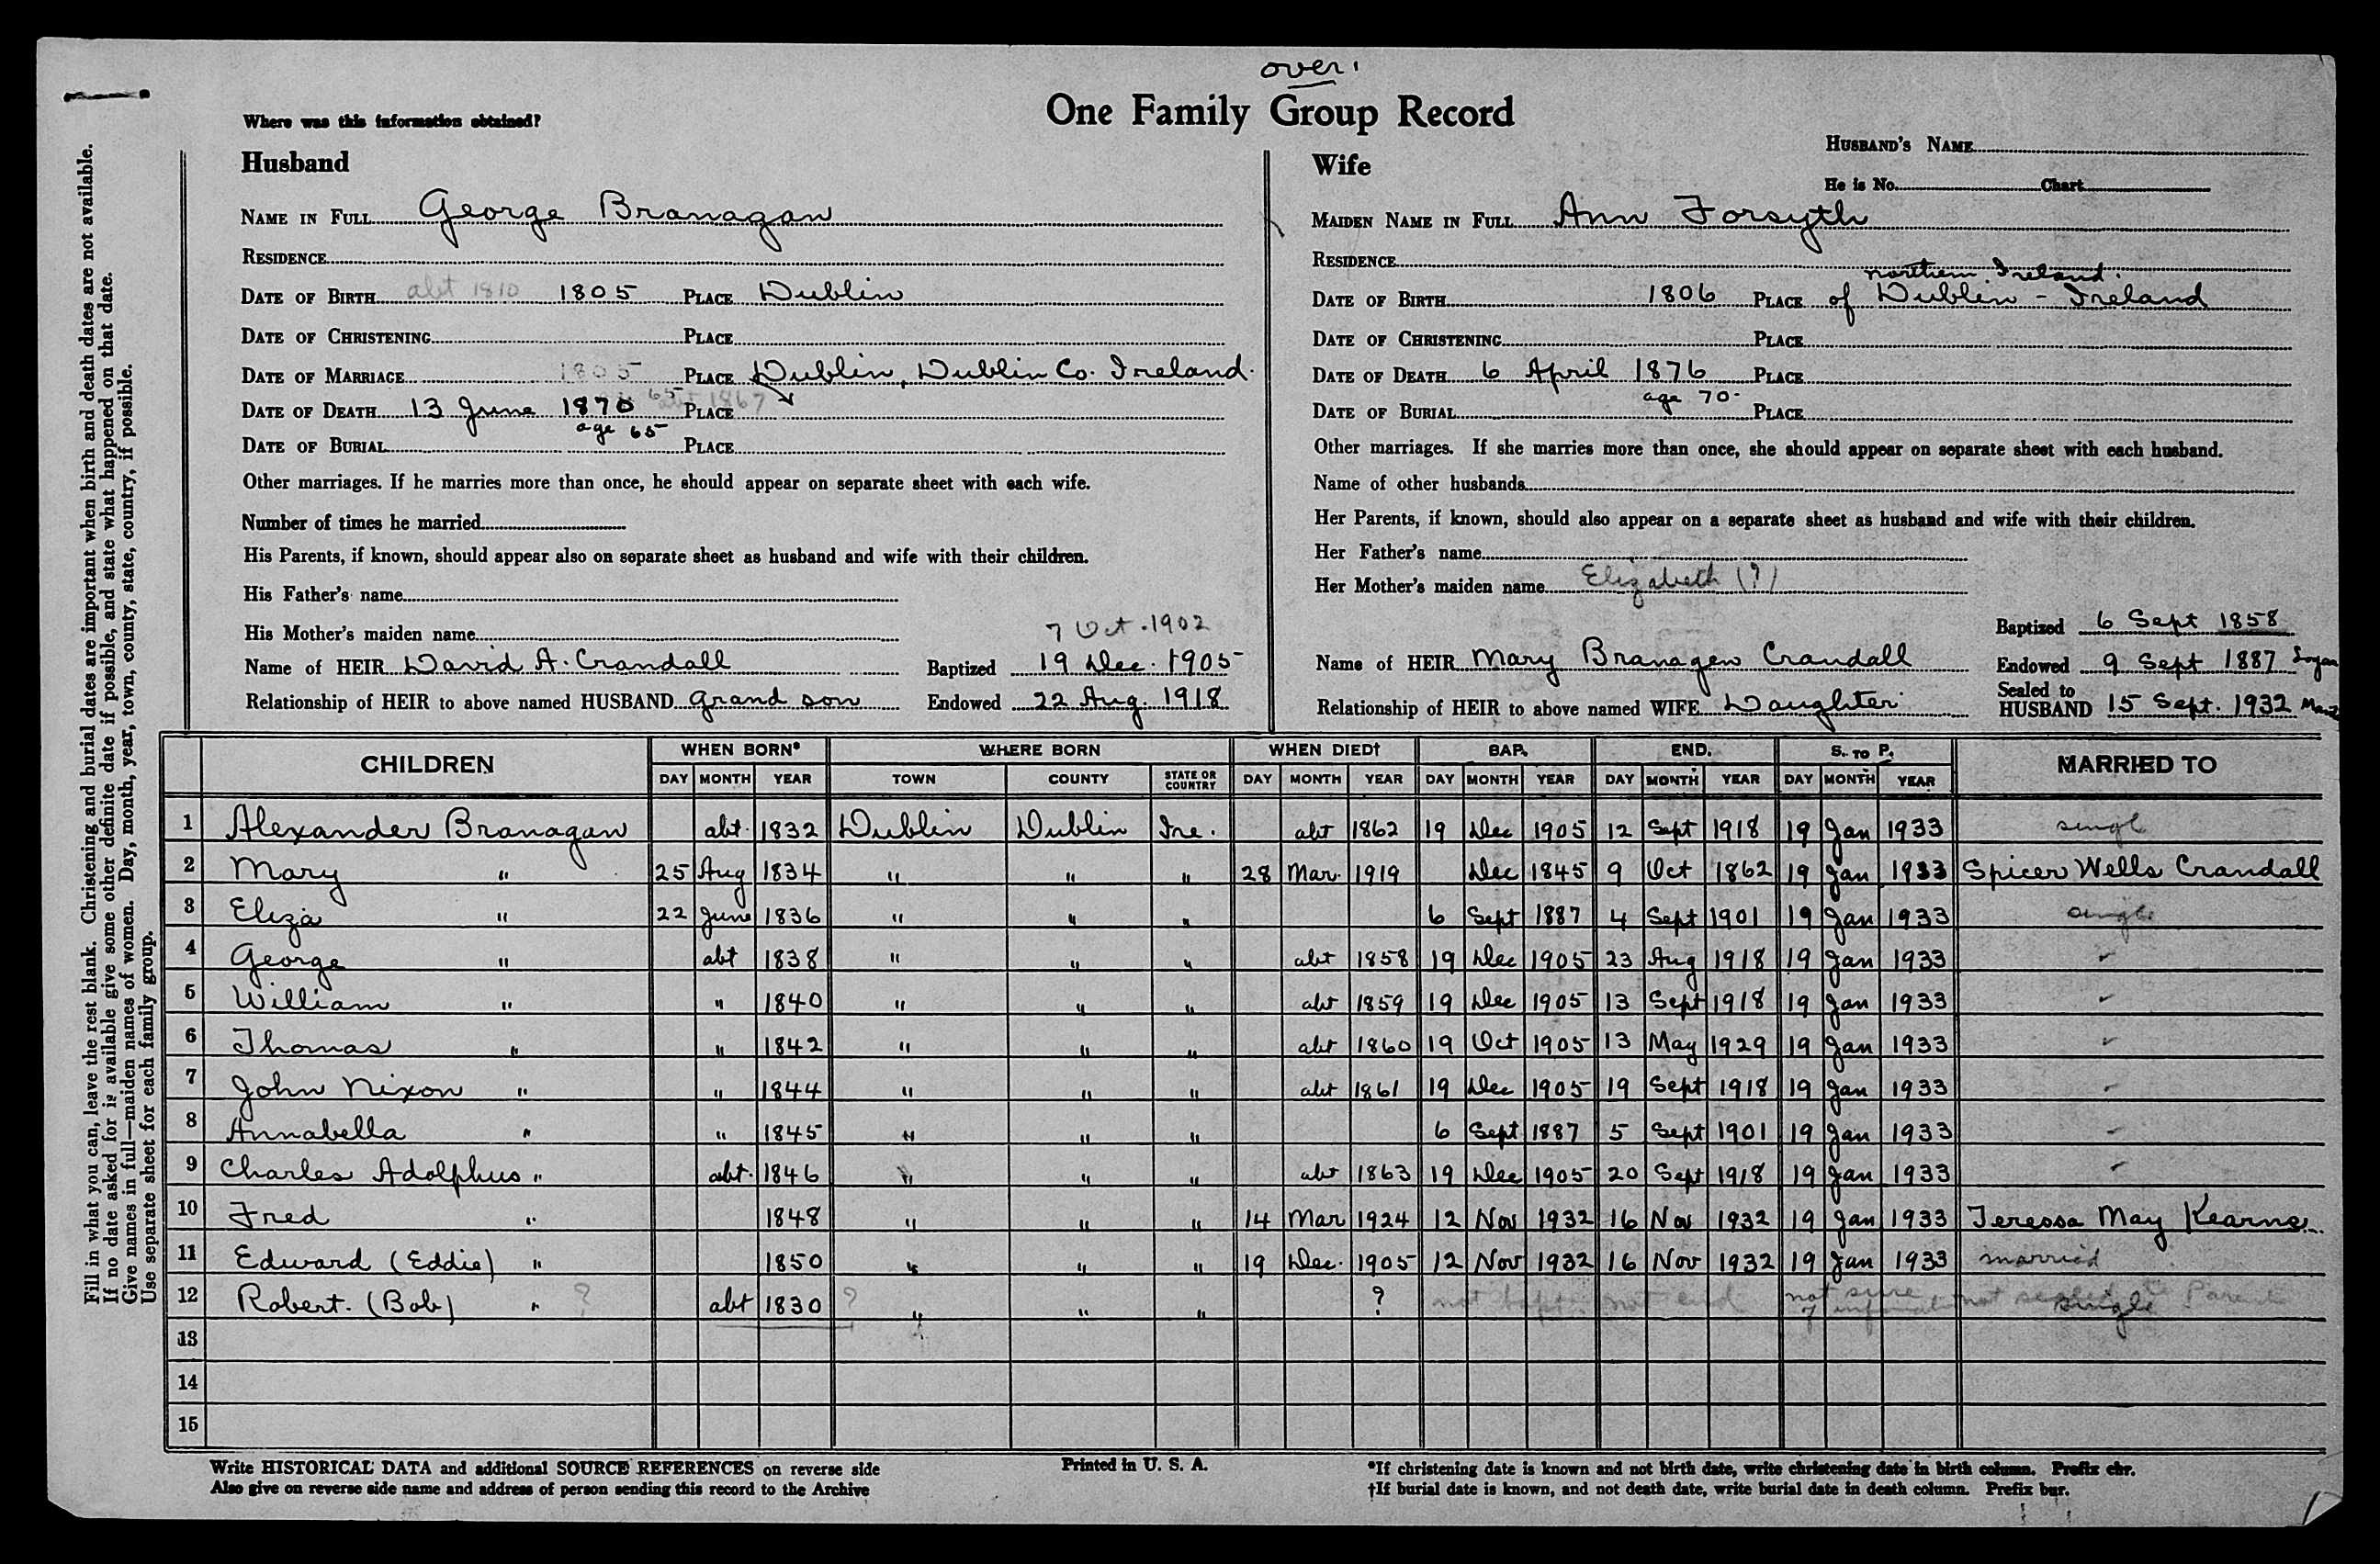 over.
One Family Group Record
Where was this information obtained?
Husband
NAME IN FULL George Branagan
RESIDENCE
DATE OF BIRTH abt 1810 1805 PLACE Dublin
DATE OF CHRISTENING PLACE
DATE OF MARRIAGE 1805 PLACE Dublin, Dublin Co. Ireland.
DATE OF DEATH 13 June 1870 65 1867 PLACE
age 65
DATE OF BURIAL PLACE
Other marriages. If he marries more than once, he should appear on separate sheet with each wife.
Number of times he married
His Parents, if known, should appear also on separate sheet as husband and wife with their children.
His Father's name
His Mother's maiden name 7 Oct. 1902
Name of HEIR David A. Crandall Baptized 19 Dec. 1905
Relationship of HEIR to above named HUSBAND Grand son Endowed 22 Aug. 1918
Wife
HUSBAND'S NAME
He is No. Chart
MAIDEN NAME IN FULL Ann Forsyth
RESIDENCE
northern Ireland.
DATE OF BIRTH 1806 PLACE of Dublin - Ireland
DATE OF CHRISTENING PLACE
DATE OF DEATH 6 April 1876 PLACE
age 70-
DATE OF BURIAL PLACE
Other marriages. If she marries more than once, she should appear on separate sheet with each husband.
Name of other husbands
Her Parents, if known, should also appear on a separate sheet as husband and wife with their children.
Her Father's name
Her Mother's maiden name Elizabeth (?)
Baptized 6 Sept 1858
Name of HEIR Mary Branagen Crandall Endowed 9 Sept 1887 Logan
Relationship of HEIR to above named WIFE Daughter Sealed to HUSBAND 15 Sept. 1932
CHILDREN WHEN BORN* WHERE BORN WHEN DIED† BAP. END. S. TO P. MARRIED TO
DAY MONTH YEAR TOWN COUNTY STATE OR COUNTRY DAY MONTH YEAR DAY MONTH YEAR DAY MONTH YEAR DAY MONTH YEAR
1 Alexander Branagan abt. 1832 Dublin Dublin Ire. abt 1862 19 Dec 1905 12 Sept 1918 19 Jan 1933 singl
2 Mary " 25 Aug 1834 " " " 28 Mar. 1919 Dec 1845 9 Oct 1862 19 Jan 1933 Spicer Wells Crandall
3 Eliza " 22 June 1836 " " " 6 Sept 1887 4 Sept 1901 19 Jan 1933 single
4 George " abt 1838 " " " abt 1858 19 Dec 1905 23 Aug 1918 19 Jan 1933 "
5 William " " 1840 " " " abt 1859 19 Dec 1905 13 Sept 1918 19 Jan 1933 "
6 Thomas " " 1842 " " " abt 1860 19 Oct 1905 13 May 1929 19 Jan 1933 "
7 John Nixon " " 1844 " " " abt 1861 19 Dec 1905 19 Sept 1918 19 Jan 1933 "
8 Annabella " " 1845 " " " 6 Sept 1887 5 Sept 1901 19 Jan 1933 "
9 Charles Adolphus " abt. 1846 " " " abt 1863 19 Dec 1905 20 Sept 1918 19 Jan 1933 "
10 Fred " 1848 " " " 14 Mar 1924 12 Nov 1932 16 Nov 1932 19 Jan 1933 Teressa May Kearns
11 Edward (Eddie) " 1850 " " " 19 Dec. 1905 12 Nov 1932 16 Nov 1932 19 Jan 1933 married
12 Robert. (Bob) " ? abt 1830 ? " " " ? not bapt. not end not sure of not sealed to Parents single
13
14
15
Write HISTORICAL DATA and additional SOURCE REFERENCES on reverse side
Also give on reverse side name and address of person sending this record to the Archive
Printed in U. S. A.
*If christening date is known and not birth date, write christening date in birth column. Prefix chr.
†If burial date is known, and not death date, write burial date in death column. Prefix bur.
Fill in what you can, leave the rest blank. Christening and burial dates are important when birth and death dates are not available.
If no date asked for is available give some other definite date if possible, and state what happened on that date.
Give names in full—maiden names of women. Day, month, year, town, county, state, country, if possible.
Use separate sheet for each family group.